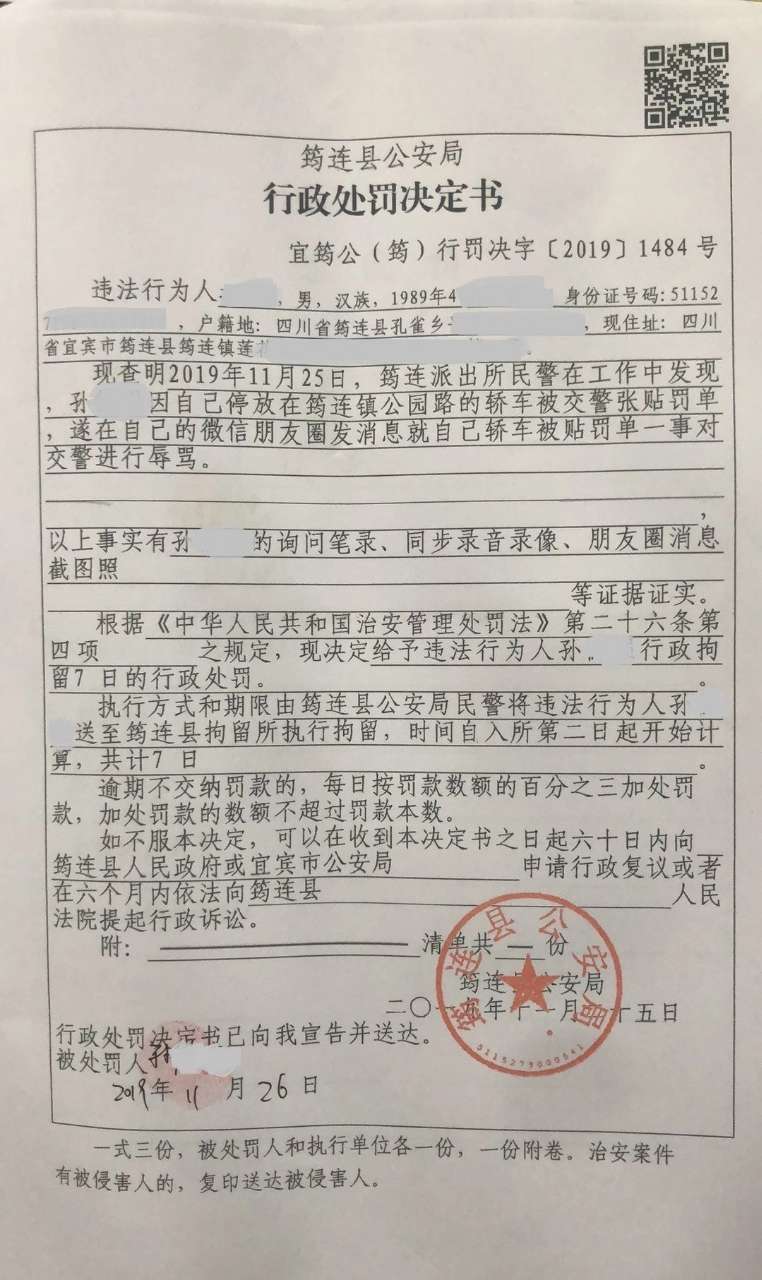 筠连县公安局
行政处罚决定书
宜筠公（筠）行罚决字〔2019〕1484 号
违法行为人 ，男，汉族，1989年4 身份证号码：51152
7 ，户籍地：四川省筠连县孔雀乡 ，现住址：四川
省宜宾市筠连县筠连镇莲 。
现查明2019年11月25日，筠连派出所民警在工作中发现
，孙 因自己停放在筠连镇公园路的轿车被交警张贴罚单
，遂在自己的微信朋友圈发消息就自己轿车被贴罚单一事对
交警进行辱骂。
，
以上事实有孙 的询问笔录、同步录音录像、朋友圈消息
截图照
等证据证实。
根据《中华人民共和国治安管理处罚法》第二十六条第
四项 之规定，现决定给予违法行为人孙 行政拘
留7 日的行政处罚。 。
执行方式和期限由筠连县公安局民警将违法行为人孙
送至筠连县拘留所执行拘留，时间自入所第二日起开始计
算，共计7 日 。
逾期不交纳罚款的，每日按罚款数额的百分之三加处罚
款，加处罚款的数额不超过罚款本数。
如不服本决定，可以在收到本决定书之日起六十日内向
筠连县人民政府或宜宾市公安局 申请行政复议或者
在六个月内依法向筠连县 人民
法院提起行政诉讼。
附： 清单共 一 份
筠连县公安局
筠连县公安局
二〇一九年十一月 十五日
5115273000541
行政处罚决定书已向我宣告并送达。
被处罚人 孙
2019年 11 月 26 日
一式三份，被处罚人和执行单位各一份，一份附卷。治安案件
有被侵害人的，复印送达被侵害人。